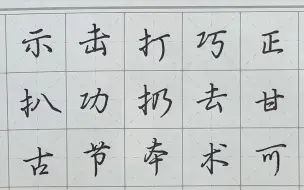 示击打巧正
扒功扔去甘
古节本术可